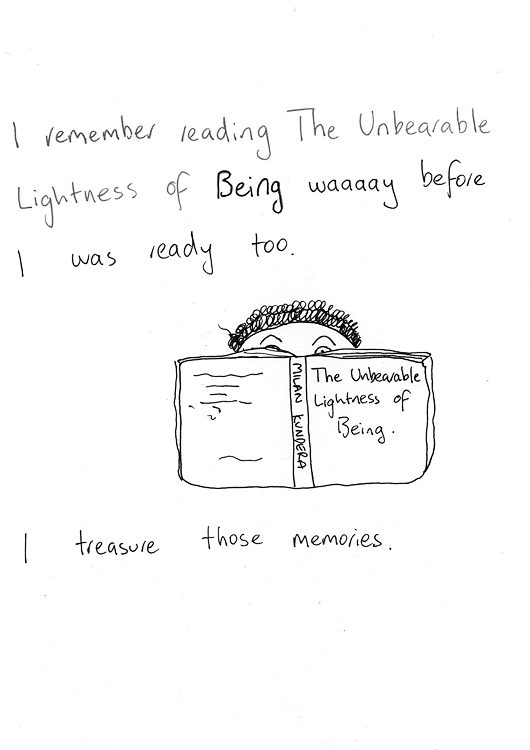 I remember reading The Unbearable
Lightness of Being waaaay before
I was ready too.
MILAN KUNDERA
The Unbearable
Lightness of
Being.
I treasure those memories.